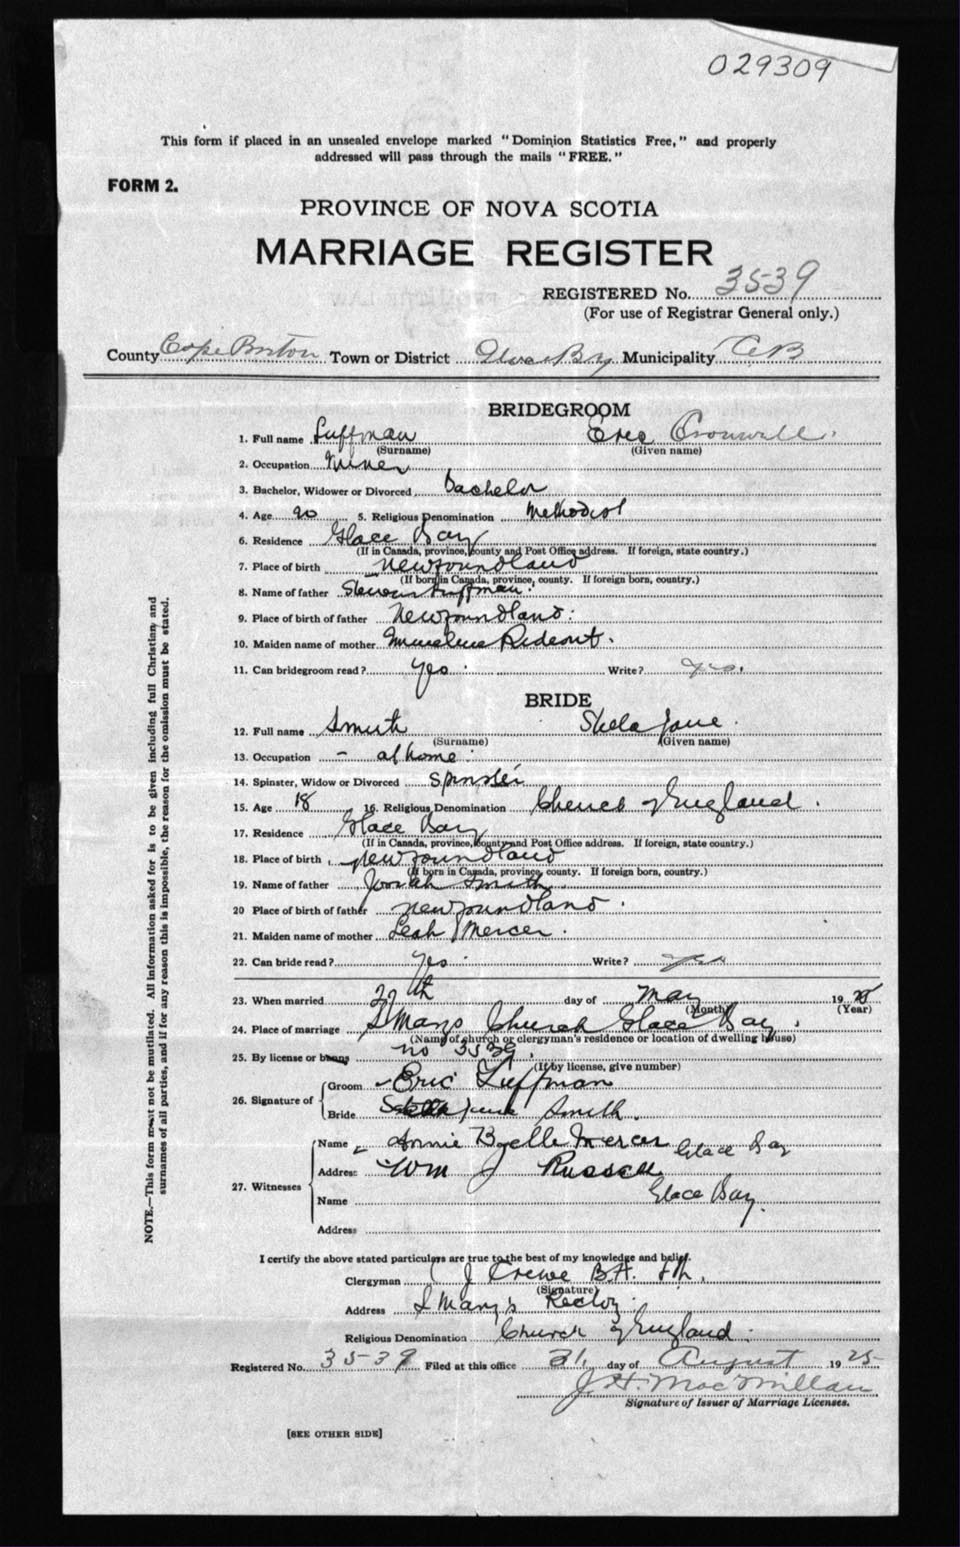 029309
This form if placed in an unsealed envelope marked "Dominion Statistics Free," and properly
addressed will pass through the mails "FREE."
FORM 2.
PROVINCE OF NOVA SCOTIA
MARRIAGE REGISTER
REGISTERED No. 3539
(For use of Registrar General only.)
County Cape Breton Town or District Glace Bay Municipality CB
BRIDEGROOM
1. Full name Luffman Eric Cromwell.
(Surname) (Given name)
2. Occupation Miner
3. Bachelor, Widower or Divorced bachelor
4. Age 20 5. Religious Denomination Methodist
6. Residence Glace Bay
(If in Canada, province, county and Post Office address. If foreign, state country.)
7. Place of birth Newfoundland
(If born in Canada, province, county. If foreign born, country.)
8. Name of father Luffman.
9. Place of birth of father Newfoundland.
10. Maiden name of mother Rideout.
11. Can bridegroom read? Yes. Write? yes.
BRIDE
12. Full name Smith Jane.
(Surname) (Given name)
13. Occupation - at home.
14. Spinster, Widow or Divorced Spinster
15. Age 18 16. Religious Denomination Church of England.
17. Residence Glace Bay
(If in Canada, province, county and Post Office address. If foreign, state country.)
18. Place of birth Newfoundland
(If born in Canada, province, county. If foreign born, country.)
19. Name of father Josiah Smith
20 Place of birth of father Newfoundland.
21. Maiden name of mother Leah Mercer.
22. Can bride read? Yes. Write? yes
23. When married th day of May 19
(Month) (Year)
24. Place of marriage S Marys Church Glace Bay.
(Name of church or clergyman's residence or location of dwelling house)
25. By license or banns no 3539.
(If by license, give number)
26. Signature of Groom Eric Luffman
Bride Jane Smith.
27. Witnesses
Name Annie Mercer Glace Bay
Address Wm J Russell
Name Glace Bay.
Address
I certify the above stated particulars are true to the best of my knowledge and belief.
Clergyman J Crewe B.A.
(Signature)
Address S Mary's Rectory.
Religious Denomination Church of England.
Registered No. 3539 Filed at this office 31, day of August 1925
J. H. MacMillan
Signature of Issuer of Marriage Licenses.
[SEE OTHER SIDE]
NOTE.—This form must not be mutilated. All information asked for is to be given including full Christian and
surnames of all parties, and if for any reason this is impossible, the reason for the omission must be stated.